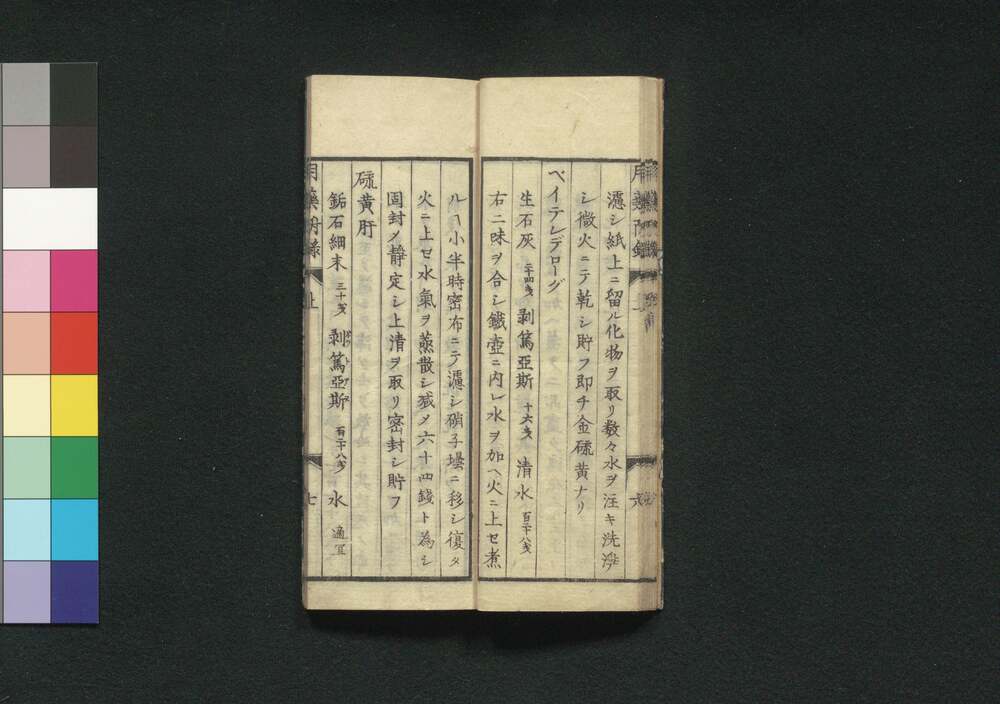 濾シ紙上ニ留ル化物ヲ取リ数々水ヲ注キ洗浄
シ微火ニテ乾シ貯フ即チ金硫黄ナリ
ベイテレデローグ
生石灰 二十四戔 剥篤亞斯 十六戔 清水 百二十八戔
右二味ヲ合シ鐵壺ニ内レ水ヲ加ヘ火ニ上セ煮
ルヿ小半時密布ニテ濾シ硝子壜ニ移シ復タ
火ニ上セ水氣ヲ蒸散シ減メ六十四錢ト為シ
固封メ静定シ上清ヲ取リ密封シ貯フ
硫黄肝
鉐石細末 三十戔 剥篤亞斯 百二十八戔 水 適宜
用藥附録 上 七